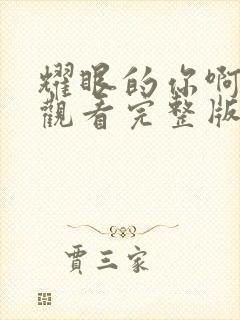 耀眼的你啊
觀看完整版
賈三家